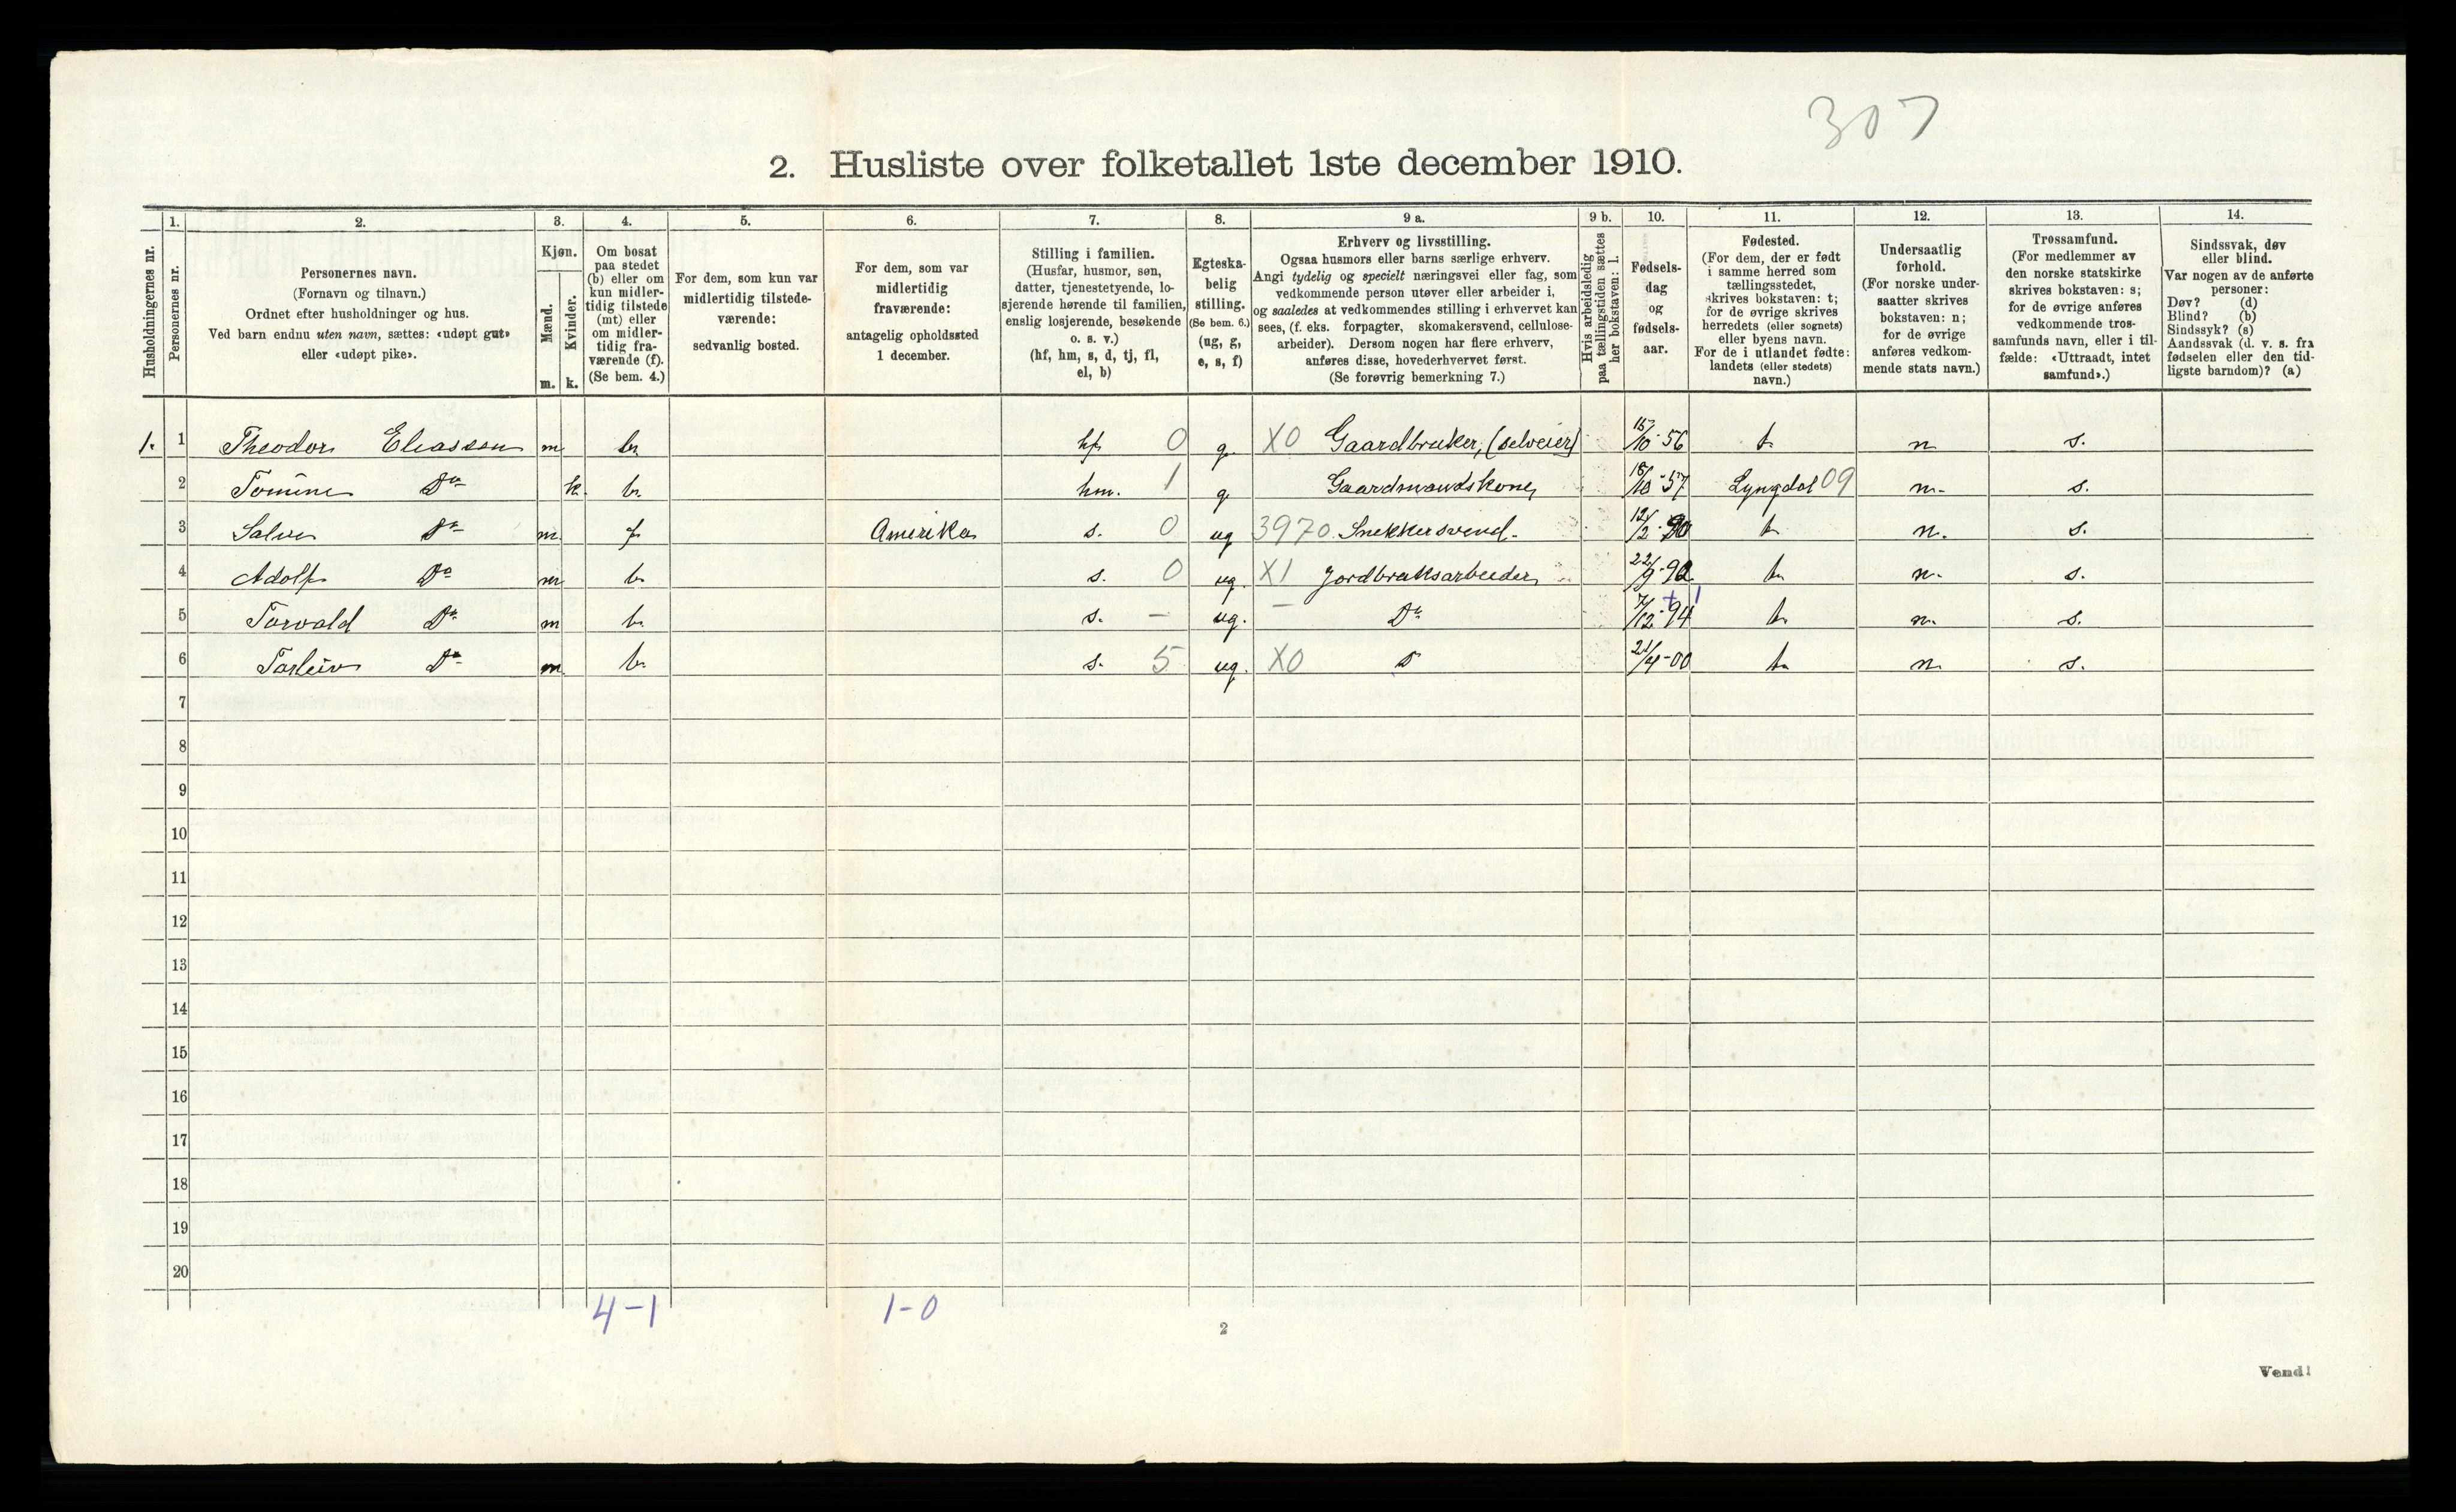 307
2. Husliste over folketallet 1ste december 1910.
Husholdningernes nr.
1. Personernes nr.
2. Personernes navn.
(Fornavn og tilnavn.)
Ordnet efter husholdninger og hus.
Ved barn endnu uten navn, sættes: «udøpt gut»
eller «udøpt pike».
3. Kjøn.
Mænd. m.
Kvinder. k.
4. Om bosat
paa stedet
(b) eller om
kun midler-
tidig tilstede
(mt) eller
om midler-
tidig fra-
værende (f).
(Se bem. 4.)
5. For dem, som kun var
midlertidig tilstede-
værende:
sedvanlig bosted.
6. For dem, som var
midlertidig
fraværende:
antagelig opholdssted
1 december.
7. Stilling i familien.
(Husfar, husmor, søn,
datter, tjenestetyende, lo-
sjerende hørende til familien,
enslig losjerende, besøkende
o. s. v.)
(hf, hm, s, d, tj, fl,
el, b)
8. Egteska-
belig
stilling.
(Se bem. 6.)
(ug, g,
e, s, f)
9 a. Erhverv og livsstilling.
Ogsaa husmors eller barns særlige erhverv.
Angi tydelig og specielt næringsvei eller fag, som
vedkommende person utøver eller arbeider i,
og saaledes at vedkommendes stilling i erhvervet kan
sees, (f. eks. forpagter, skomakersvend, cellulose-
arbeider). Dersom nogen har flere erhverv,
anføres disse, hovederhvervet først.
(Se forøvrig bemerkning 7.)
9 b. Hvis arbeidsledig
paa tællingstiden sættes
her bokstaven: l.
10. Fødsels-
dag
og
fødsels-
aar.
11. Fødested.
(For dem, der er født
i samme herred som
tællingsstedet,
skrives bokstaven: t;
for de øvrige skrives
herredets (eller sognets)
eller byens navn.
For de i utlandet fødte:
landets (eller stedets)
navn.)
12. Undersaatlig
forhold.
(For norske under-
saatter skrives
bokstaven: n;
for de øvrige
anføres vedkom-
mende stats navn.)
13. Trossamfund.
(For medlemmer av
den norske statskirke
skrives bokstaven: s;
for de øvrige anføres
vedkommende tros-
samfunds navn, eller i til-
fælde: «Uttraadt, intet
samfund».)
14. Sindssvak, døv
eller blind.
Var nogen av de anførte
personer:
Døv? (d)
Blind? (b)
Sindssyk? (s)
Aandssvak (d. v. s. fra
fødselen eller den tid-
ligste barndom)? (a)
1. 1 Theodor Eliassen m b. hf 0 g. X0 Gaardbruker, (selveier) 15/10-56 t. n s.
2 Tomine Do k. b. hm. 1 g Gaardmandskone 18/10-57 Lyngdal 09 n. s.
3 Salve Do m. f Amerika s. 0 ug 3970. Snekkersvend. 12/2-90 t. n. s.
4 Adolf Do m b. s. 0 ug. X1 Jordbruksarbeider 22/9-92 t. n. s.
5 Torvald Do m b. s. – ug. – Do 7/12-94 t. n. s.
6 Torleiv Do m. b. s. 5 ug. X0 D 21/4-00 t. n. s.
7
8
9
10
11
12
13
14
15
16
17
18
19
20
4-1 1-0
2
Vend!